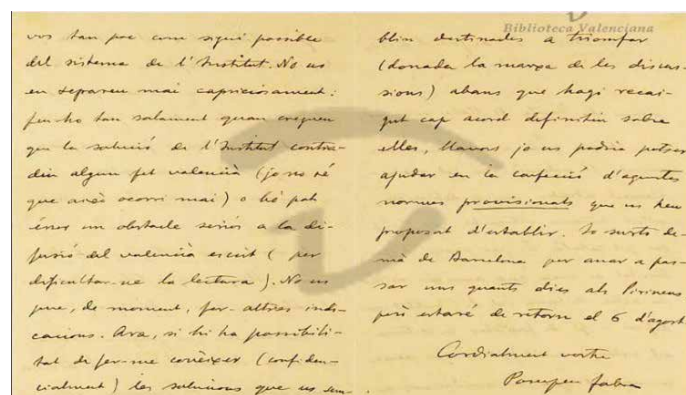 Biblioteca Valenciana
vos tan poc com sigui possible
del sistema de l'Institut. No us
en separeu mai capriciosament:
feu-ho tan solament quan cregueu
que la solució de l'Institut contra-
diu algun fet valencià (jo no sé
que això ocorri mai) o bé pot
ésser un obstacle seriós a la di-
fusió del valencià escrit (per
dificultar-ne la lectura). No us
puc, de moment, fer altres indi-
cacions. Ara, si hi ha possibili-
tat de fer-me conèixer (confiden-
cialment) les solucions que us sem-
blin destinades a triomfar
(donada la marxa de les discus-
sions) abans que hagi recai-
gut cap acord definitiu sobre
elles, llavors jo us podria potser
ajudar en la confecció d'aquestes
normes provisionals que us heu
proposat d'establir. Jo surto de-
mà de Barcelona per anar a pas-
sar uns quants dies als Pirineus
però estaré de retorn el 6 d'agost
Cordialment vostre
Pompeu Fabra